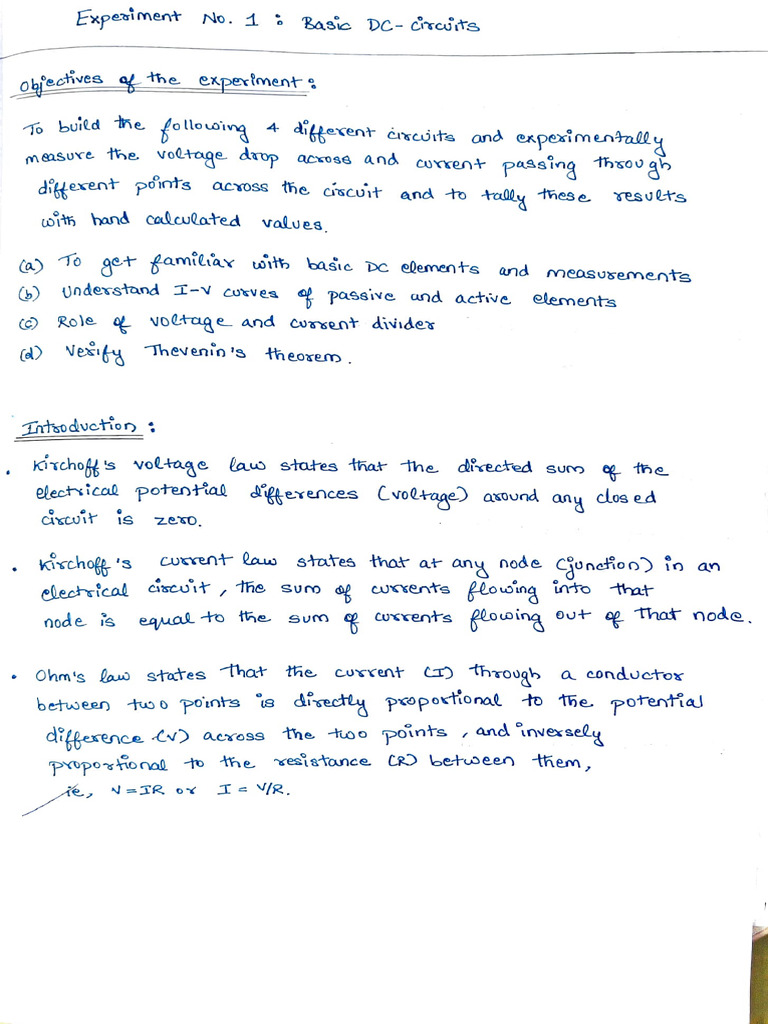 Experiment No. 1 : Basic DC-circuits
Objectives of the experiment :
To build the following 4 different circuits and experimentally
measure the voltage drop across and current passing through
different points across the circuit and to tally these results
with hand calculated values.
(a) To get familiar with basic DC elements and measurements
(b) Understand I-V curves of passive and active elements
(c) Role of voltage and current divider
(d) Verify Thevenin's theorem.
Introduction :
• Kirchoff's voltage law states that the directed sum of the
electrical potential differences (voltage) around any closed
circuit is zero.
• Kirchoff's current law states that at any node (junction) in an
electrical circuit, the sum of currents flowing into that
node is equal to the sum of currents flowing out of that node.
• Ohm's law states that the current (I) through a conductor
between two points is directly proportional to the potential
difference (V) across the two points, and inversely
proportional to the resistance (R) between them,
ie, V=IR or I = V/R.